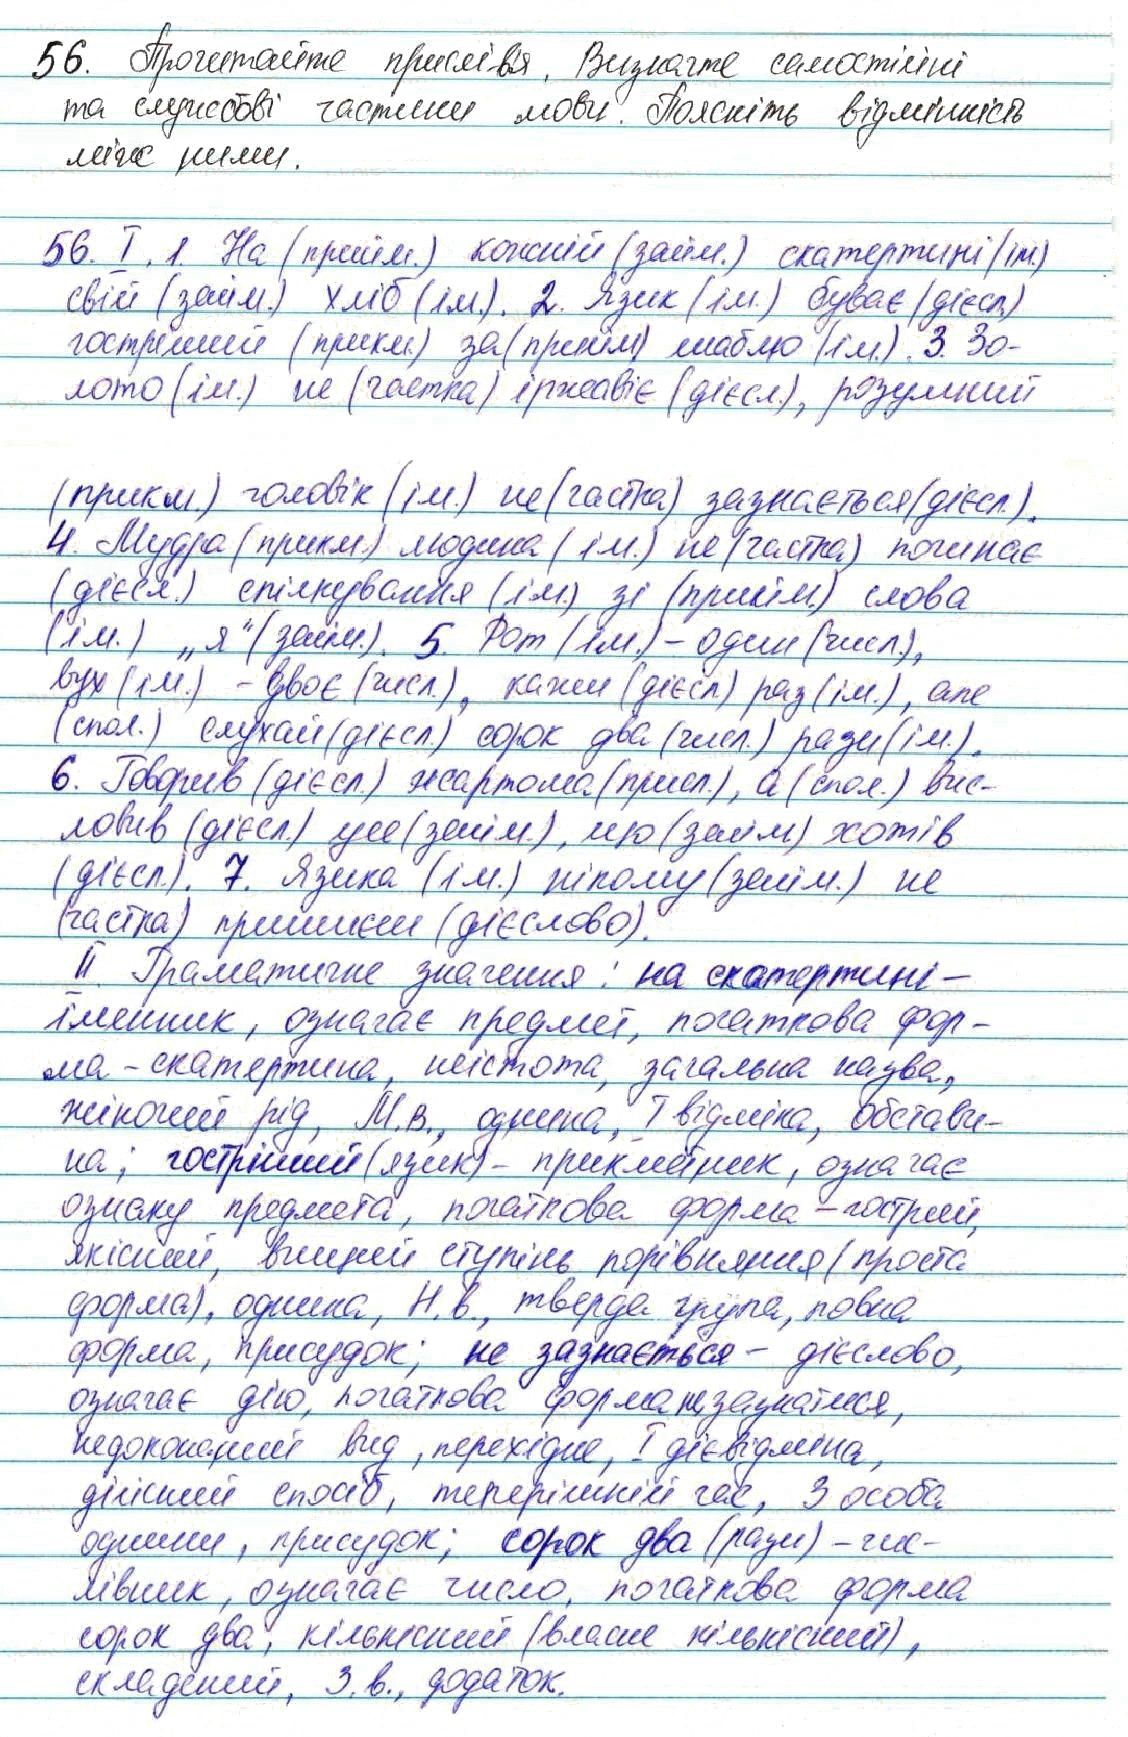 56. Прочитайте прислів'я. Визначте самостійні
та службові частини мови. Поясніть відмінність
між ними.
56. I. 1. На (прийм.) кожній (займ.) скатертині (ім.)
свій (займ.) хліб (ім.). 2. Язик (ім.) буває (дієсл.)
гостріший (прикм.) за (прийм) шаблю (ім.). 3. Зо-
лото (ім.) не (частка) іржавіє (дієсл.), розумний
(прикм.) чоловік (ім.) не (частка) зазнається (дієсл.).
4. Мудра (прикм.) людина (ім.) не (частка) починає
(дієсл.) спілкування (ім.) зі (прийм.) слова
(ім.) „я“ (займ.). 5. Рот (ім.) – один (числ.),
вух (ім.) – двоє (числ.), кажи (дієсл) раз (ім.), але
(спол.) слухай (дієсл.) сорок два (числ.) рази (ім.).
6. Говорив (дієсл.) жартома (присл.), а (спол.) вис-
ловив (дієсл.) усе (займ.), що (займ) хотів
(дієсл.). 7. Язика (ім.) нікому (займ.) не
(частка) пришиєш (дієслово).
II. Граматичне значення: на скатертині –
іменник, означає предмет, початкова фор-
ма – скатертина, неістота, загальна назва,
жіночий рід, М.в., однина, I відміна, обстави-
на; гостріший (язик) – прикметник, означає
ознаку предмета, початкова форма – гострий,
якісний, вищий ступінь порівняння (проста
форма), однина, Н.в., тверда група, повна
форма, присудок; не зазнається – дієслово,
означає дію, початкова форма зазнатися,
недоконаний вид, перехідне, I дієвідміна,
дійсний спосіб, теперішній час, 3 особа
однини, присудок; сорок два (рази) – чис-
лівник, означає число, початкова форма
сорок два, кількісний (власне кількісний),
складений, З.в., додаток.